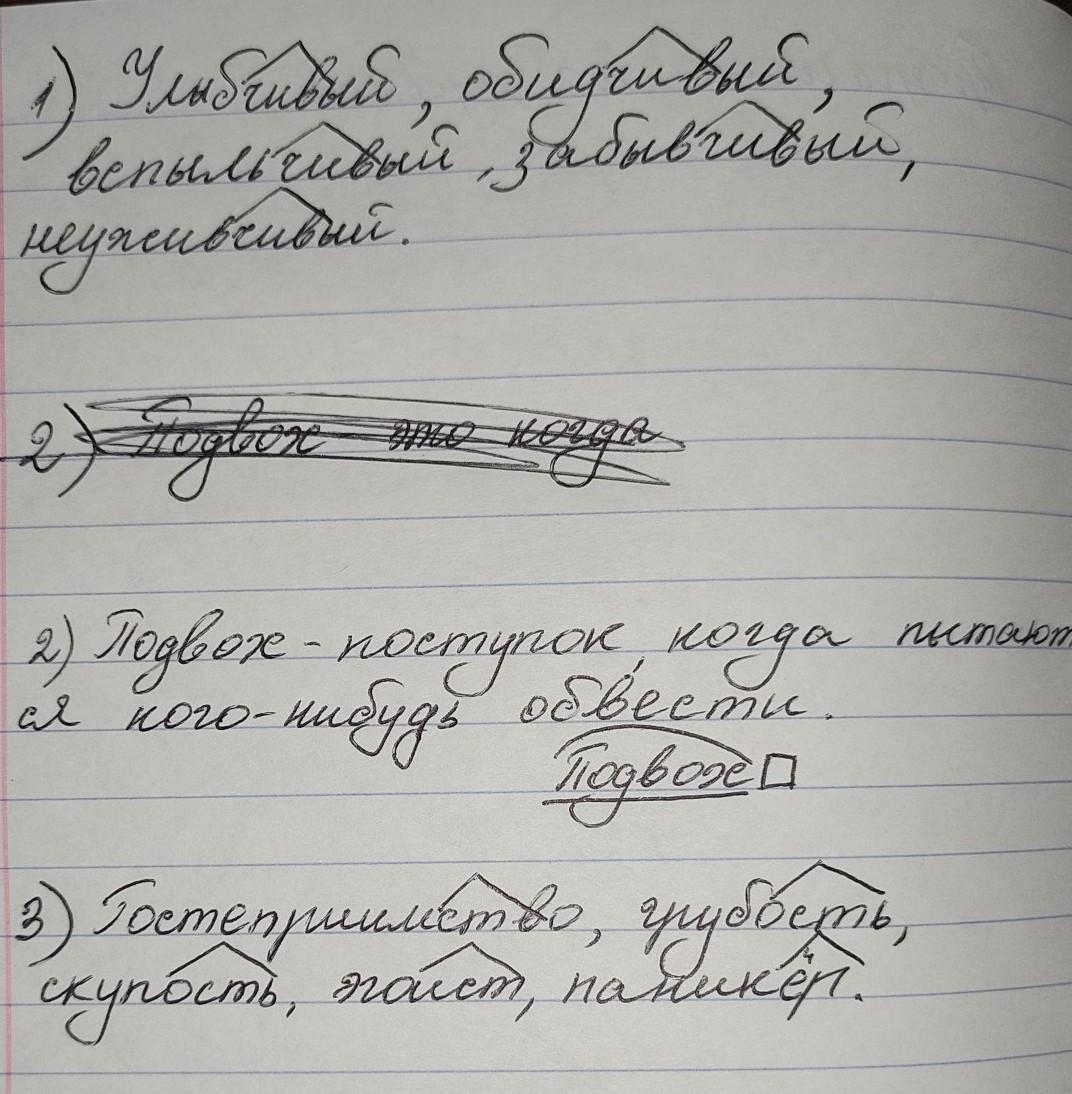 1) Улыбчивый, обидчивый,
вспыльчивый, забывчивый,
неуживчивый.
2) Подвох - это когда
2) Подвох - поступок, когда пытают
ся кого-нибудь обвести.
Подвох
3) Гостеприимство, грубость,
скупость, эгоист, паникёр.